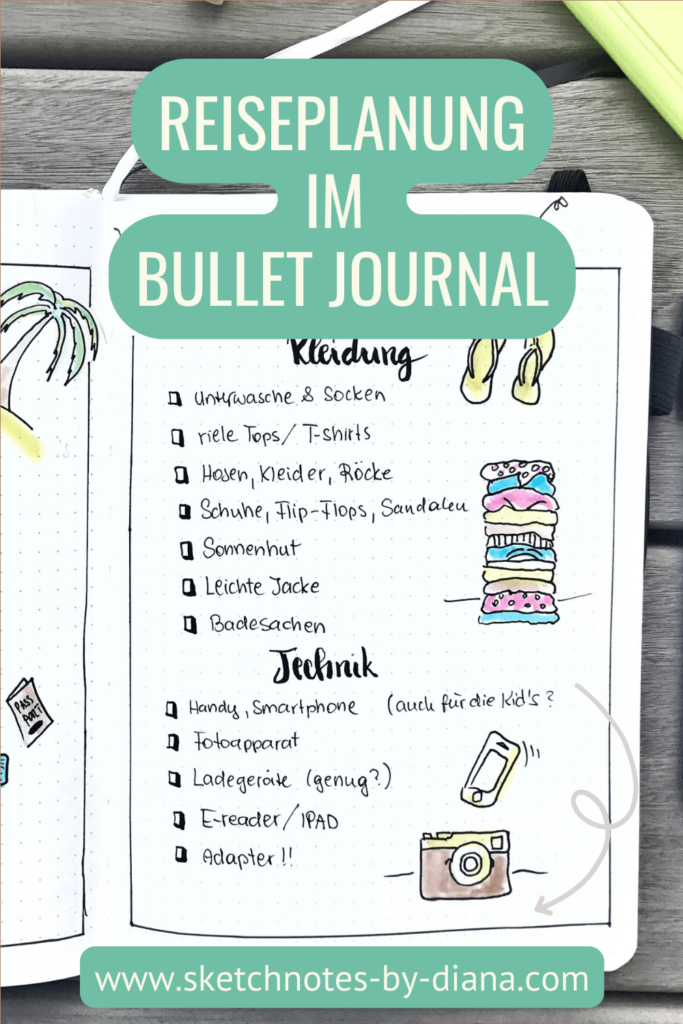 REISEPLANUNG
IM
BULLET JOURNAL
Kleidung
Unterwäsche & Socken
viele Tops / T-shirts
Hosen, Kleider, Röcke
Schuhe, Flip-Flops, Sandalen
Sonnenhut
Leichte Jacke
Badesachen
Technik
Handy, Smartphone (auch für die Kid's?
Fotoapparat
Ladegeräte (genug?)
E-reader/IPAD
Adapter!!
PASS
PORT
www.sketchnotes-by-diana.com